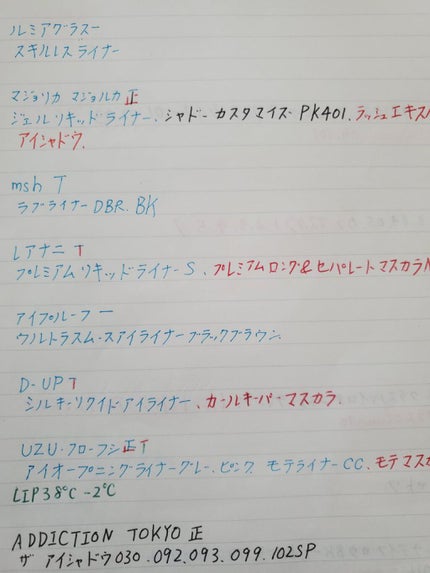 ルミアグラスー
スキルレスライナー
マジョリカ マジョルカ 正
ジェルリキッドライナー、シャドー カスタマイズ PK401、ラッシュエキス
アイシャドウ、
msh T
ラブライナー DBR、BK
レアナニ T
プレミアムリキッドライナーS、プレミアムロング&セパレートマスカラ
アイプルーフ ー
ウルトラスムースアイライナーブラックブラウン
D-UP T
シルキーリクイドアイライナー、カールキーパーマスカラ、
UZU・フローフシ 正 T
アイオープニングライナーグレー、ピンク モテライナー CC、モテマス
LIP38℃ -2℃
ADDICTION TOKYO 正
ザ アイシャドウ030、092、093、099、102SP